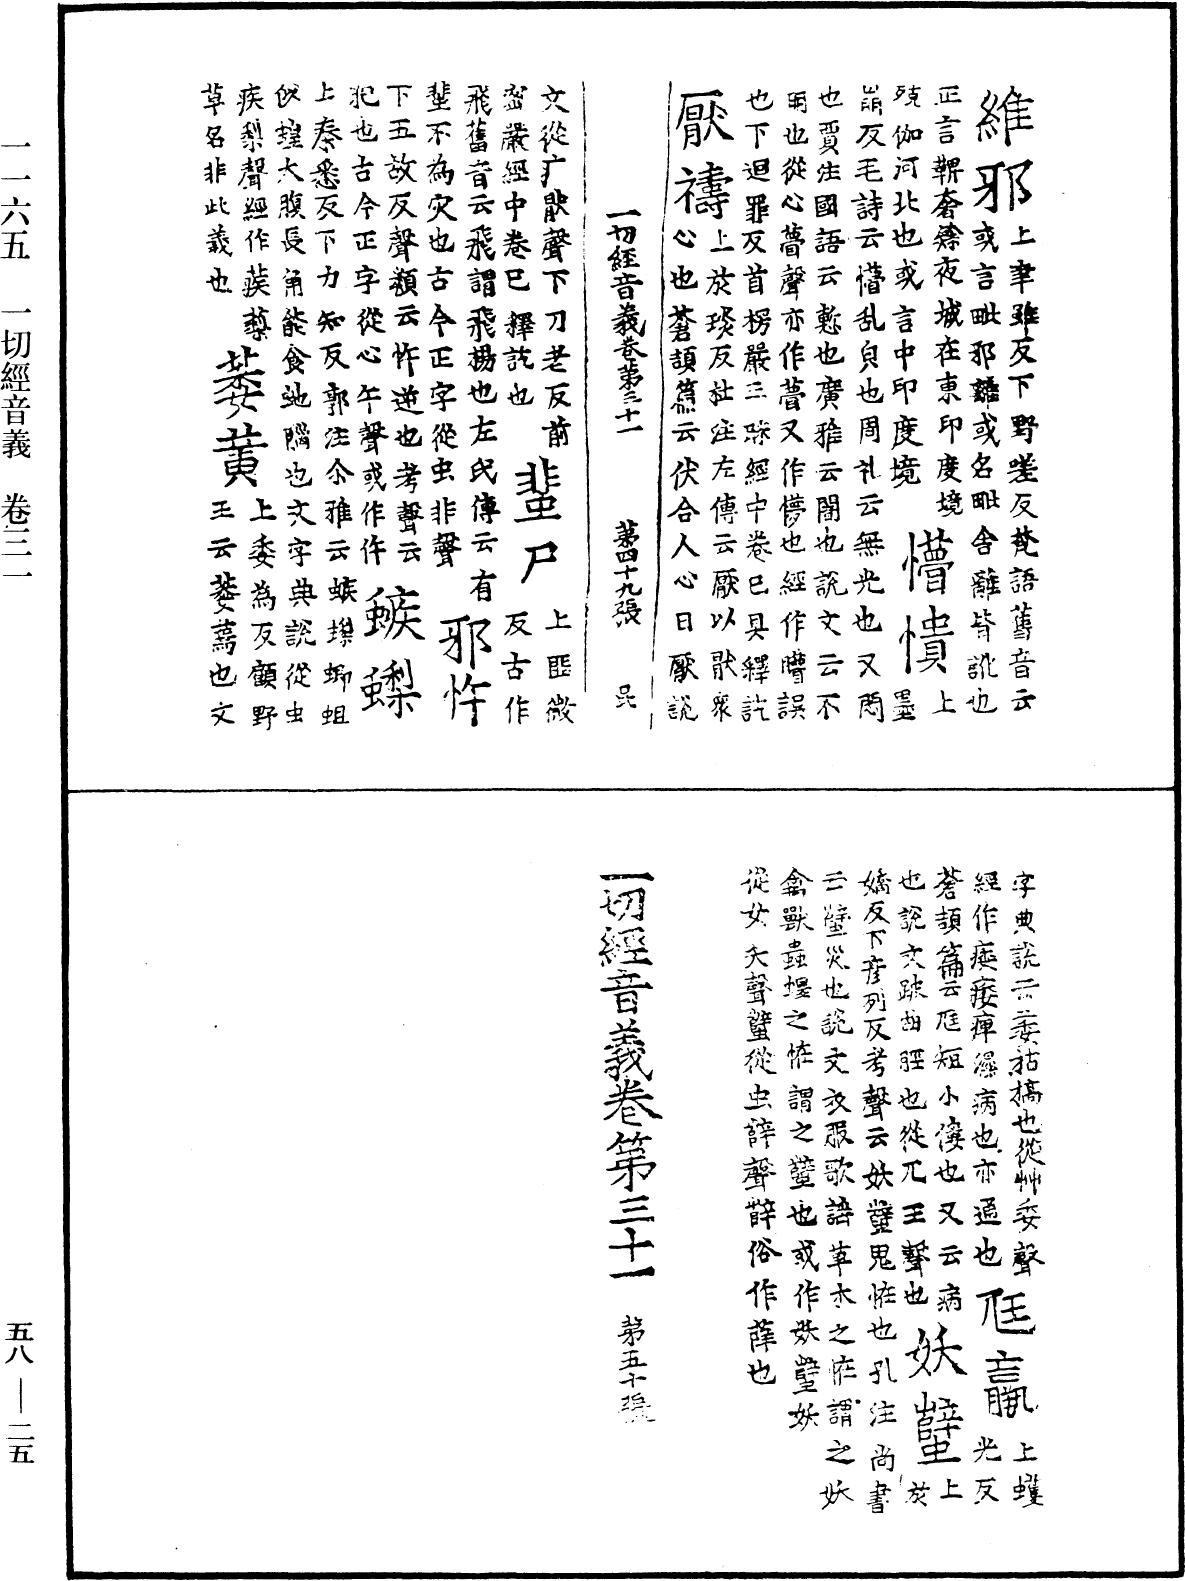 一一六五　一切經音義　卷三一
維邪上聿雖反下野嗟反梵語舊音云
或言毗邪離或名毗舍離皆訛也
正言鞞奢鎵夜城在東印度境
殑伽河北也或言中印度境
懵憒上墨
崩反毛詩云懵乱皃也周礼云無光也又悶
也賈注國語云慙也廣雅云闇也說文云不
明也從心瞢聲亦作瞢又作儚也經作矒誤
也下迴罪反首楞嚴三昧經中卷已具釋訖
厭禱上於琰反杜注左傳云厭以猒衆
心也蒼頡篇云伏合人心曰厭說
一切經音義卷第三十一　第四十九張　昆
文從疒猒聲下刀老反前
密嚴經中卷已釋訖也
蜚尸上匪微反古作
飛舊音云飛謂飛揚也左氏傳云有
蜚不為灾也古今正字從虫非聲
邪忤
下五故反聲類云忤逆也考聲云
犯也古今正字從心午聲或作仵
蝍蟍
上秦悉反下力知反郭注尒雅云蝍蟍蝍蛆
似蝗大腹長角能食虵腦也文字典說從虫
疾梨聲經作蒺藜
草名非此義也
萎黃上委為反顧野
王云萎蔫也文
字典說云萎枯槁也從艸委聲
經作痿痿痺濕病也亦通也
尫羸上蠖光反
蒼頡篇云尫短小僂也又云病
也說文跛曲脛也從兀王聲也
妖𧔦上於
嬌反下彥列反考聲云妖𧔦鬼恠也孔注尚書
云𧔦災也說文衣服歌謠草木之恠謂之妖
禽獸蟲蝗之恠謂之𧔦也或作䄏𡒃妖
從女夭聲𧔦從虫辥聲辥俗作薛也
一切經音義卷第三十一　第五十張
五八—二五